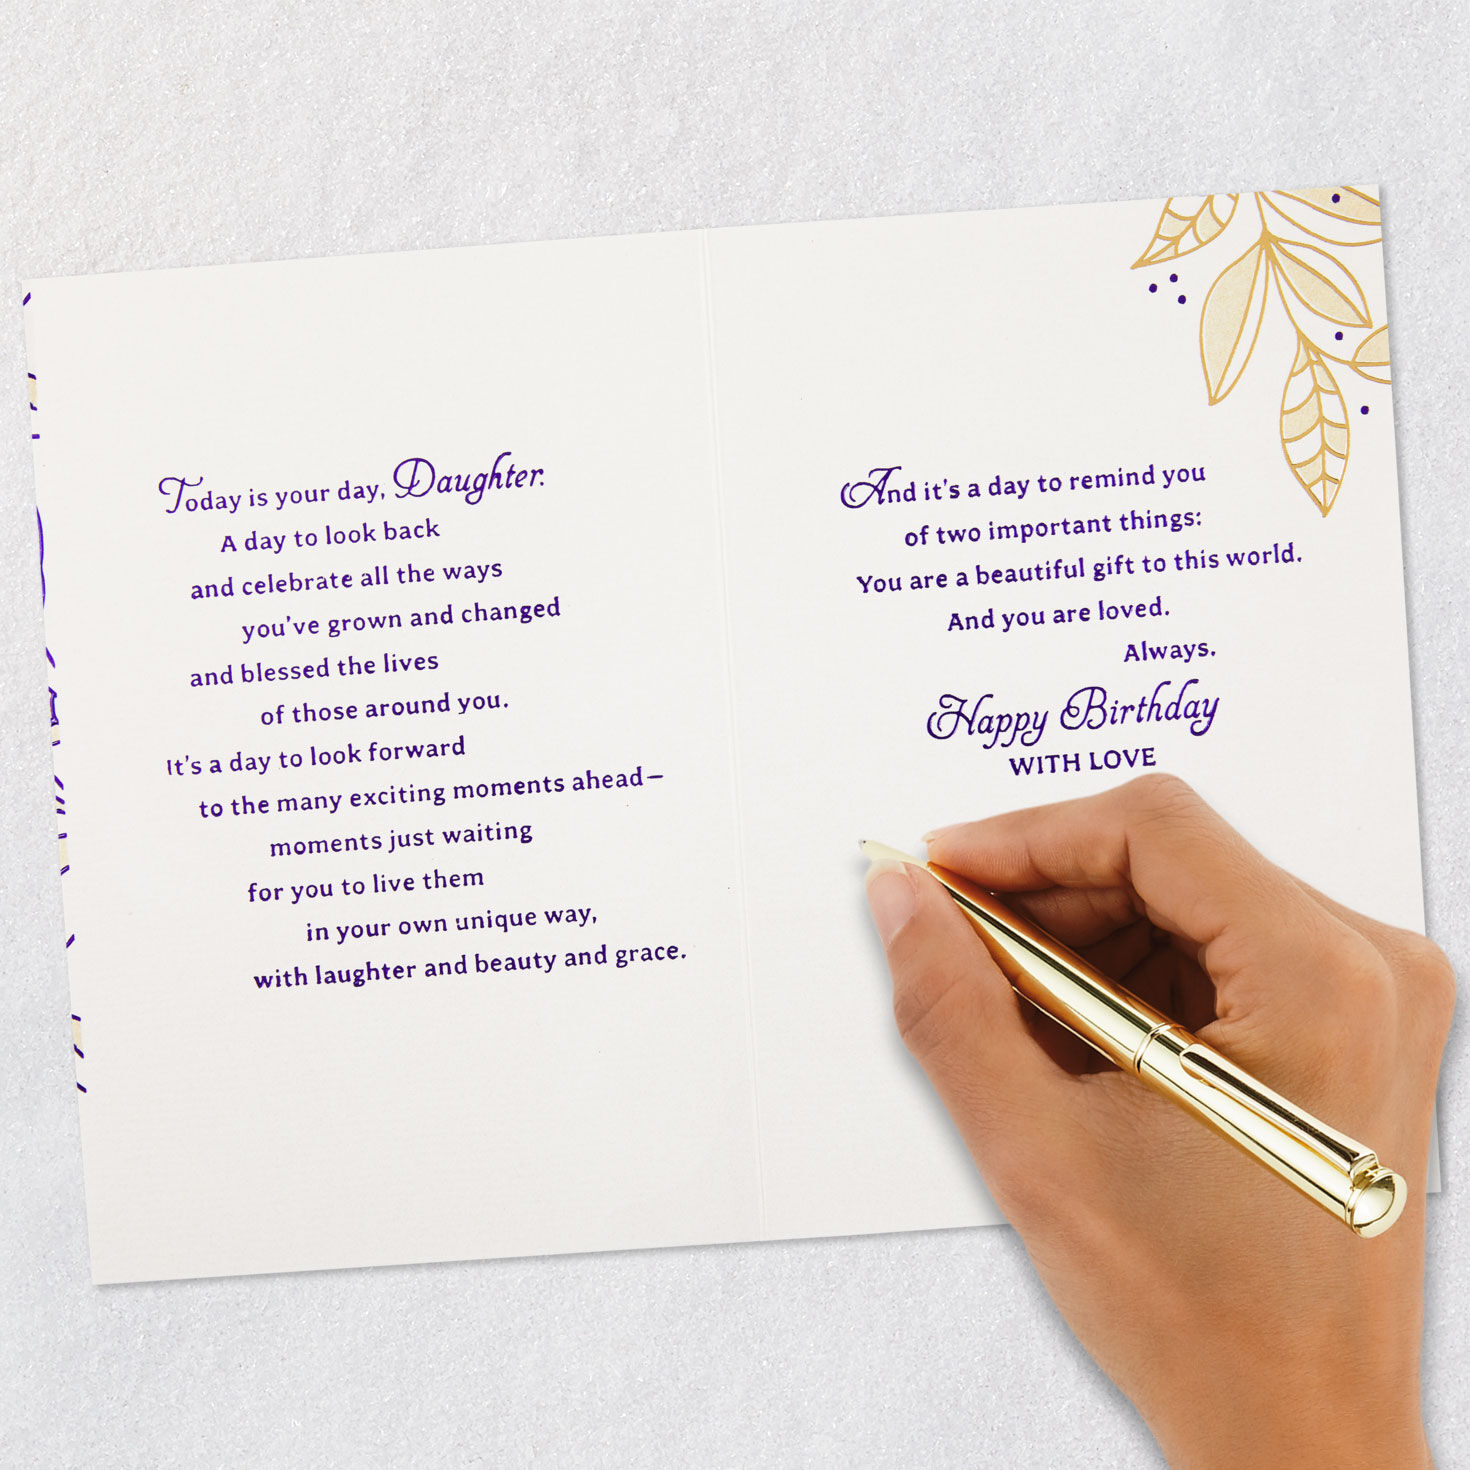 Today is your day, Daughter.
A day to look back
and celebrate all the ways
you've grown and changed
and blessed the lives
of those around you.
It's a day to look forward
to the many exciting moments ahead—
moments just waiting
for you to live them
in your own unique way,
with laughter and beauty and grace.
And it's a day to remind you
of two important things:
You are a beautiful gift to this world.
And you are loved.
Always.
Happy Birthday
WITH LOVE